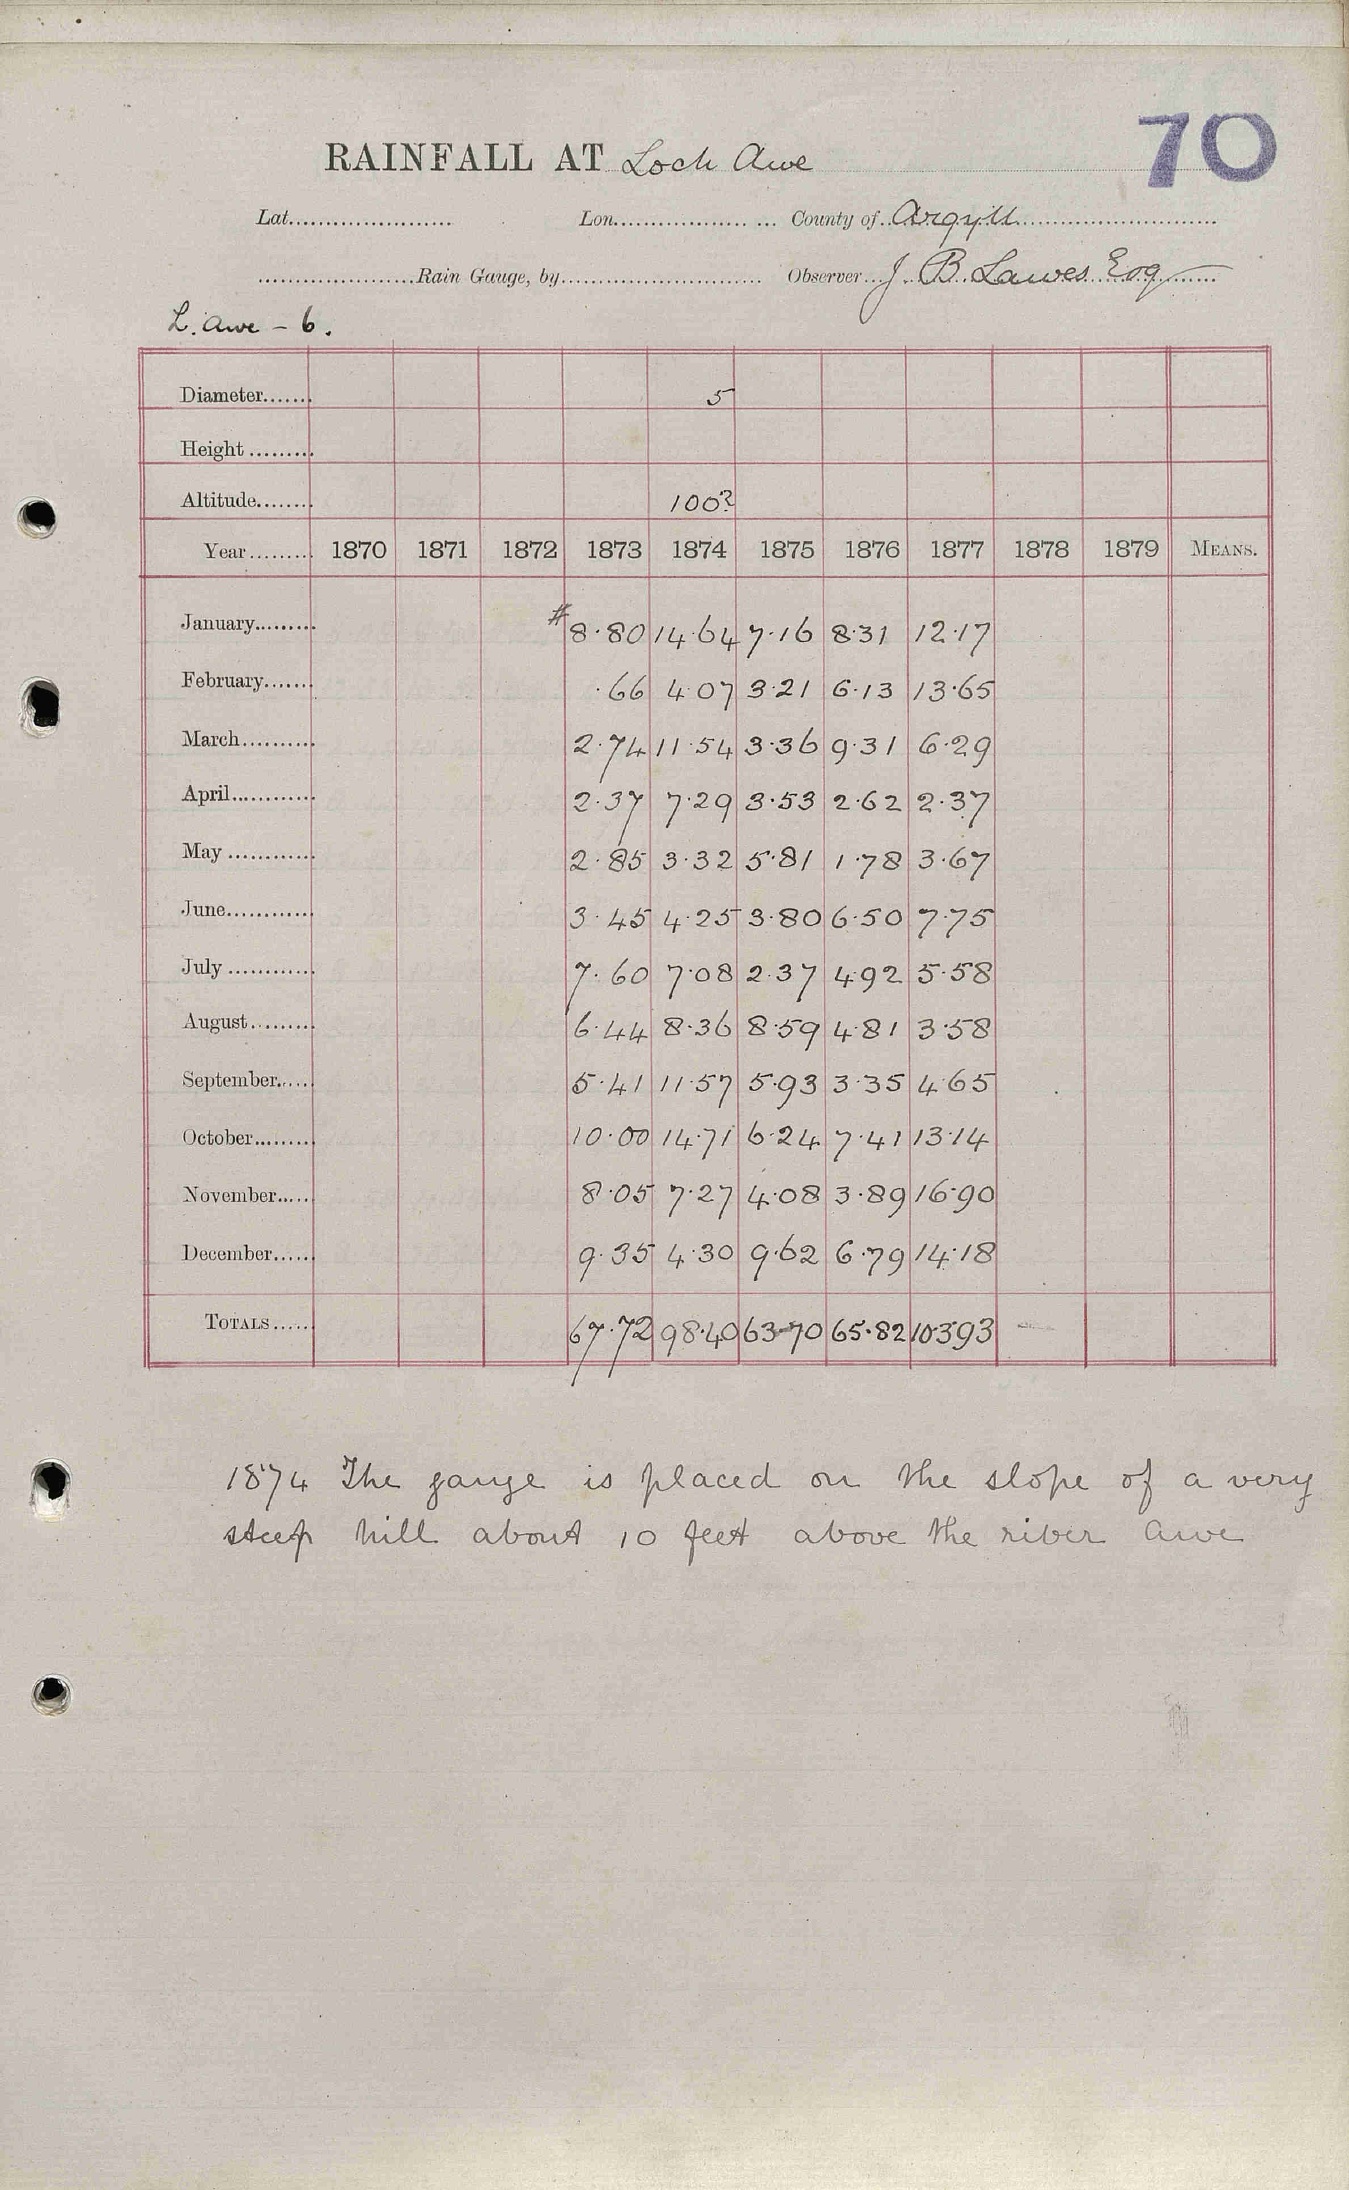 70
RAINFALL AT Loch Awe
Lat. Lon. County of Argyll
Rain Gauge, by Observer J. B. Lawes Esq
L. Awe - 6.
Diameter 5
Height
Altitude 100?
Year 1870 1871 1872 1873 1874 1875 1876 1877 1878 1879 MEANS.
January #8.80 14.64 7.16 8.31 12.17
February .66 4.07 3.21 6.13 13.65
March 2.74 11.54 3.36 9.31 6.29
April 2.37 7.29 3.53 2.62 2.37
May 2.85 3.32 5.81 1.78 3.67
June 3.45 4.25 3.80 6.50 7.75
July 7.60 7.08 2.37 4.92 5.58
August 6.44 8.36 8.59 4.81 3.58
September 5.41 11.57 5.93 3.35 4.65
October 10.00 14.71 6.24 7.41 13.14
November 8.05 7.27 4.08 3.89 16.90
December 9.35 4.30 9.62 6.79 14.18
TOTALS 67.72 98.40 63.70 65.82 103.93
1874 The gauge is placed on the slope of a very
steep hill about 10 feet above the river Awe